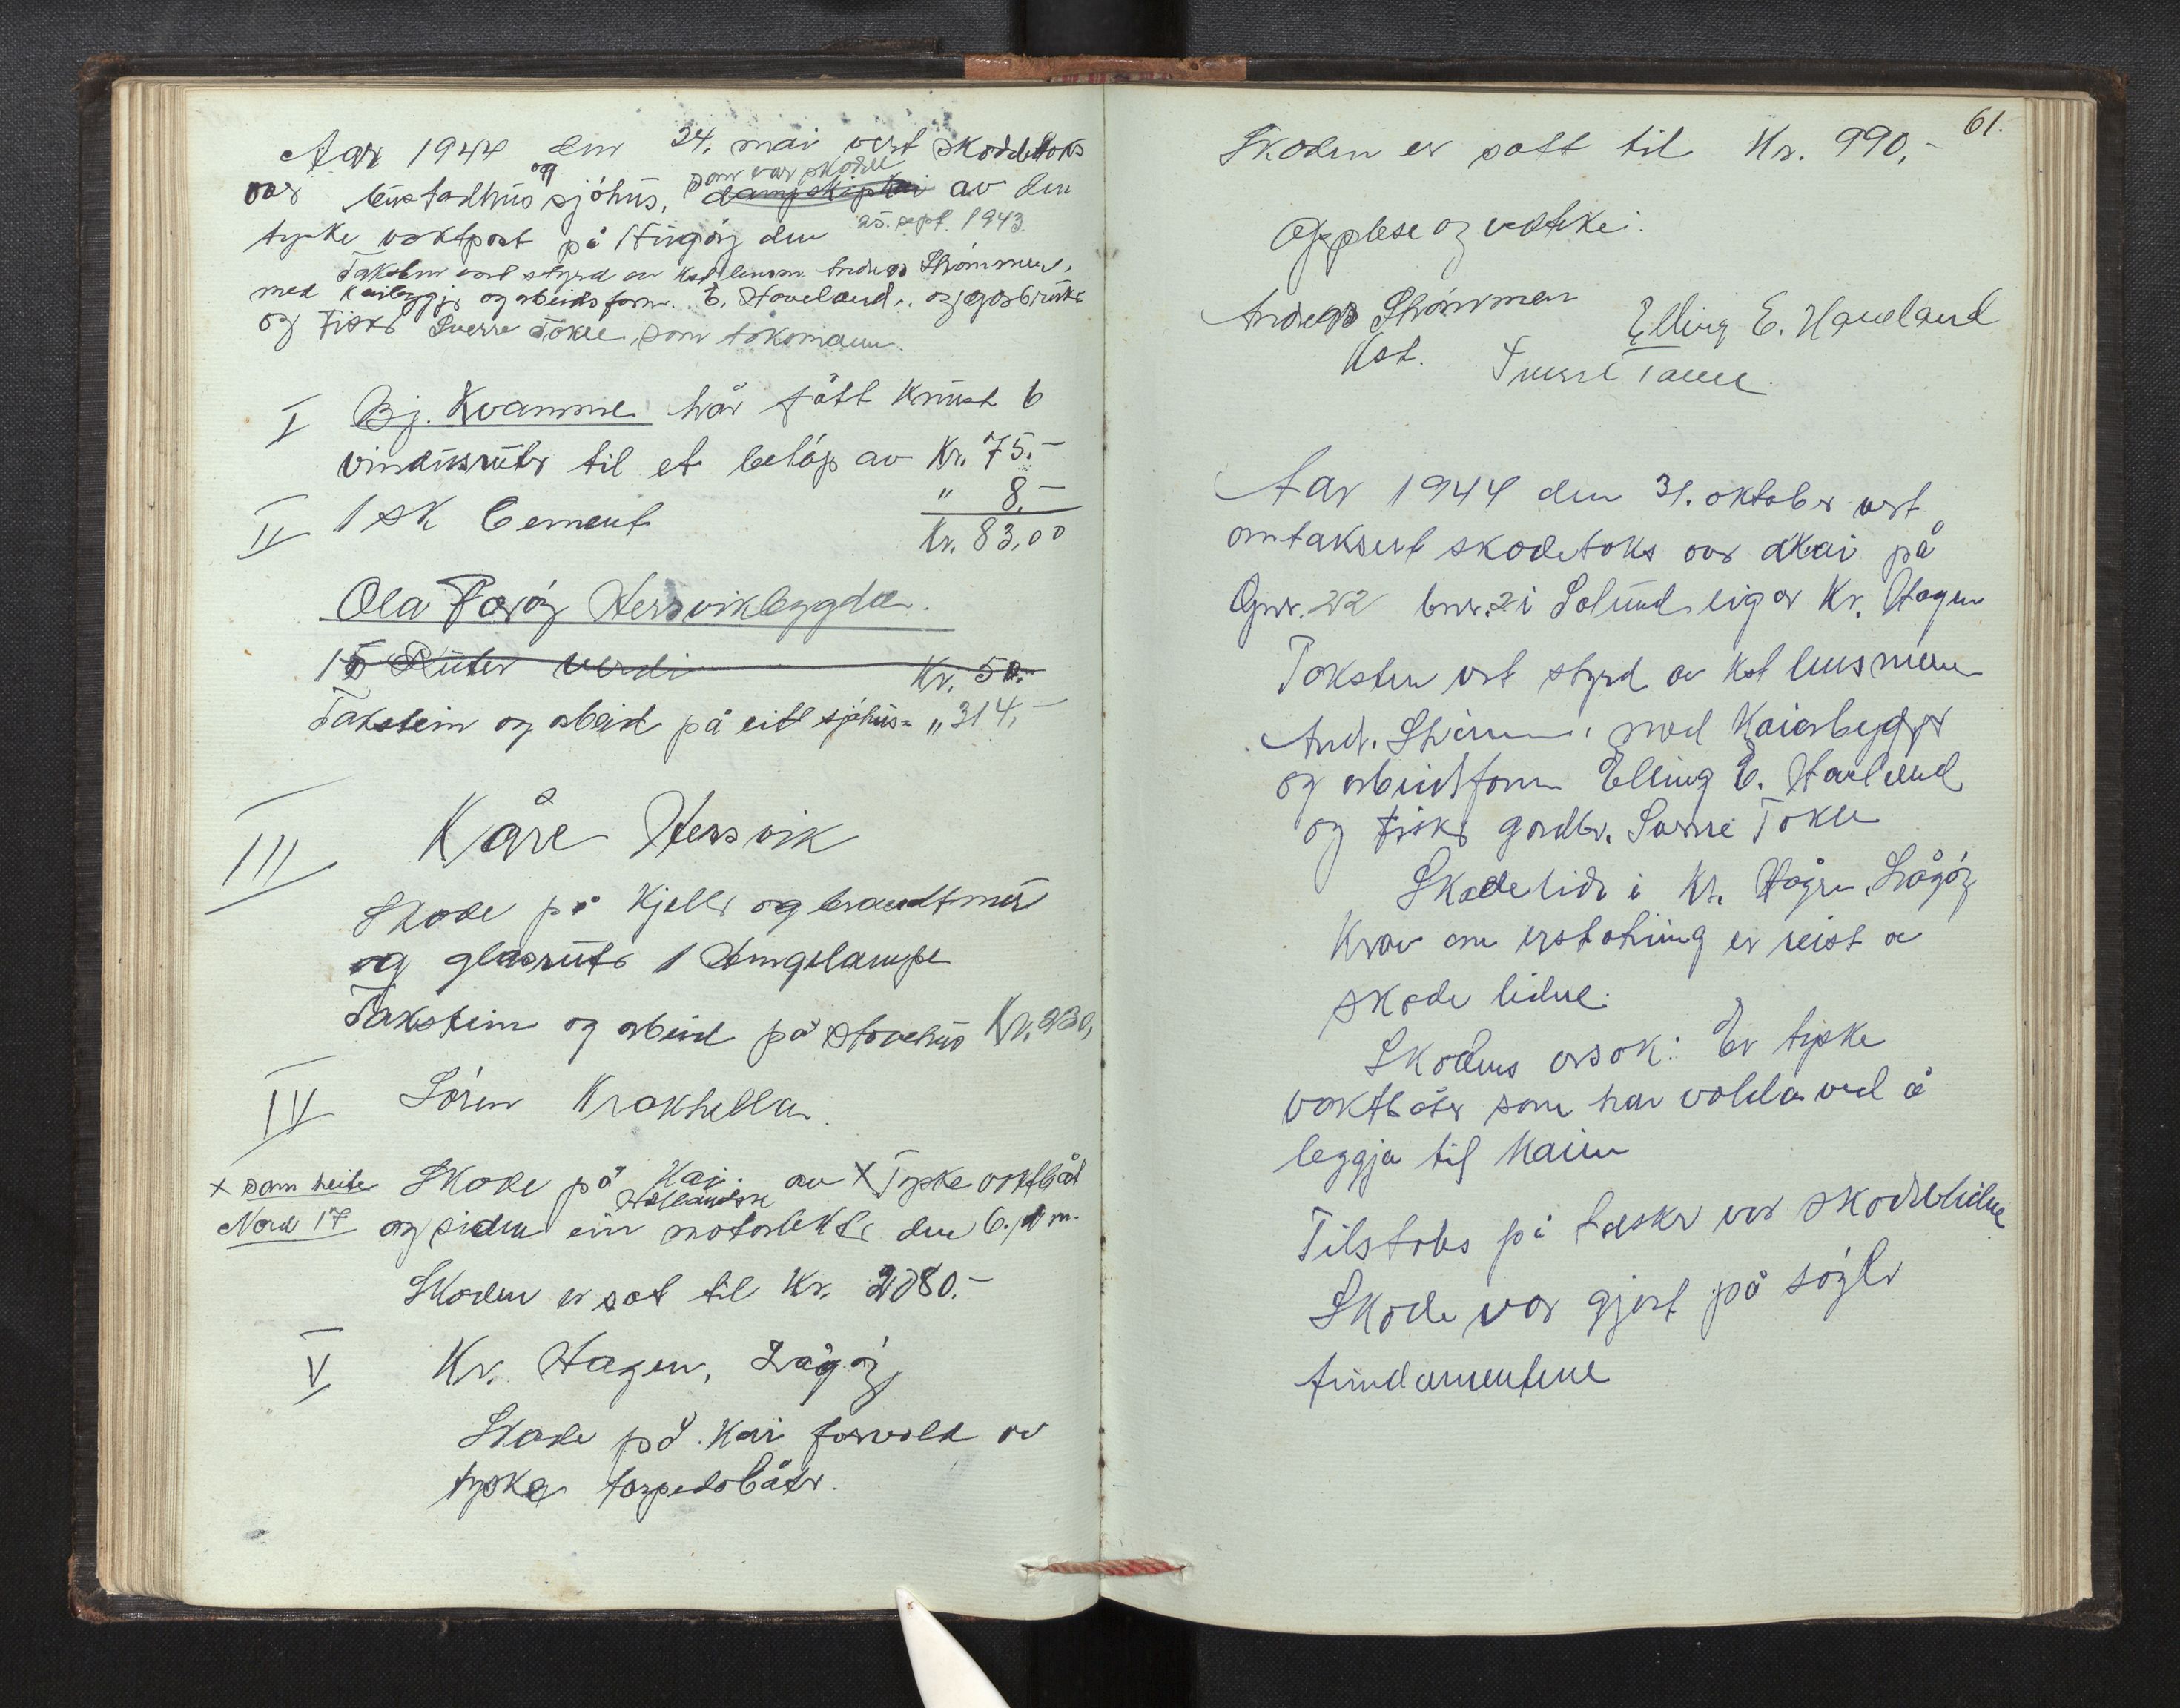 Aar 1944 den 24. mai vert skodetoks
over bustadhus og sjóhus, som var skodde dampskipkai av den
tyske vaktpost på Hugöy den 25. sept. 1943.
Taksten vert styrd av kst lensm. Andreas Strömmen,
med Kaibyggjer og arbeidsform. E. Haveland. og jordbruker
og Fisker Sverre Tokle, som toksmenn.
I Bj. Kvamme har fått knust 6
vindusruter til et belöp av Kr. 75.-
II 1 sk Cement " 8.-
Kr. 83,00
Ola Færöy Hersvikbygda.
15 Ruter verdi Kr. 50.-
Takstein og arbeid på eitt sjöhus = " 314,-
III Kåre Hersvik
Skode på Kjeller og brandtmur
og glasruter 1 Hengelampe
Takstein og arbeid på stovehus Kr. 230,
IV Sören Krakhellen.
x som heiter Skode på Kai. av x Tyske vaktbåt
Nord 17 og siden ein Hollandske motorlekter den 6. d m.
Skoden er sat til Kr. 2080.-
V Kr. Hagen, Lågöy
Skode på Kai forvold av
tyske torpedobåter.
61.
Skoden er satt til Kr. 990,-
Opplese og vedtke:
Andreas Strömmen Elling E. Haveland
Kst. Sverre Tokle.
Aar 1944 den 31. oktober vert
omtaksert skodetoks over kai på
Gnr. 22 bnr. 2 i Solund eigar Kr. Hagen
Toksten vert styrd av kst lensmann
And. Strömmen. med Kaiarbygger
og arbeidform Elling E. Haveland
og fisker gardbr. Sverre Tokle
Skodelide i Kr. Hågen Lågöy
Krav om erstatning er reist av
skode lidne.
Skodens orsok: Er tyske
vaktbåter som har volda ved å
leggja til Kaien
Tilstades på taksten var skodelidne
Skode var gjort på söyler
fundamentene